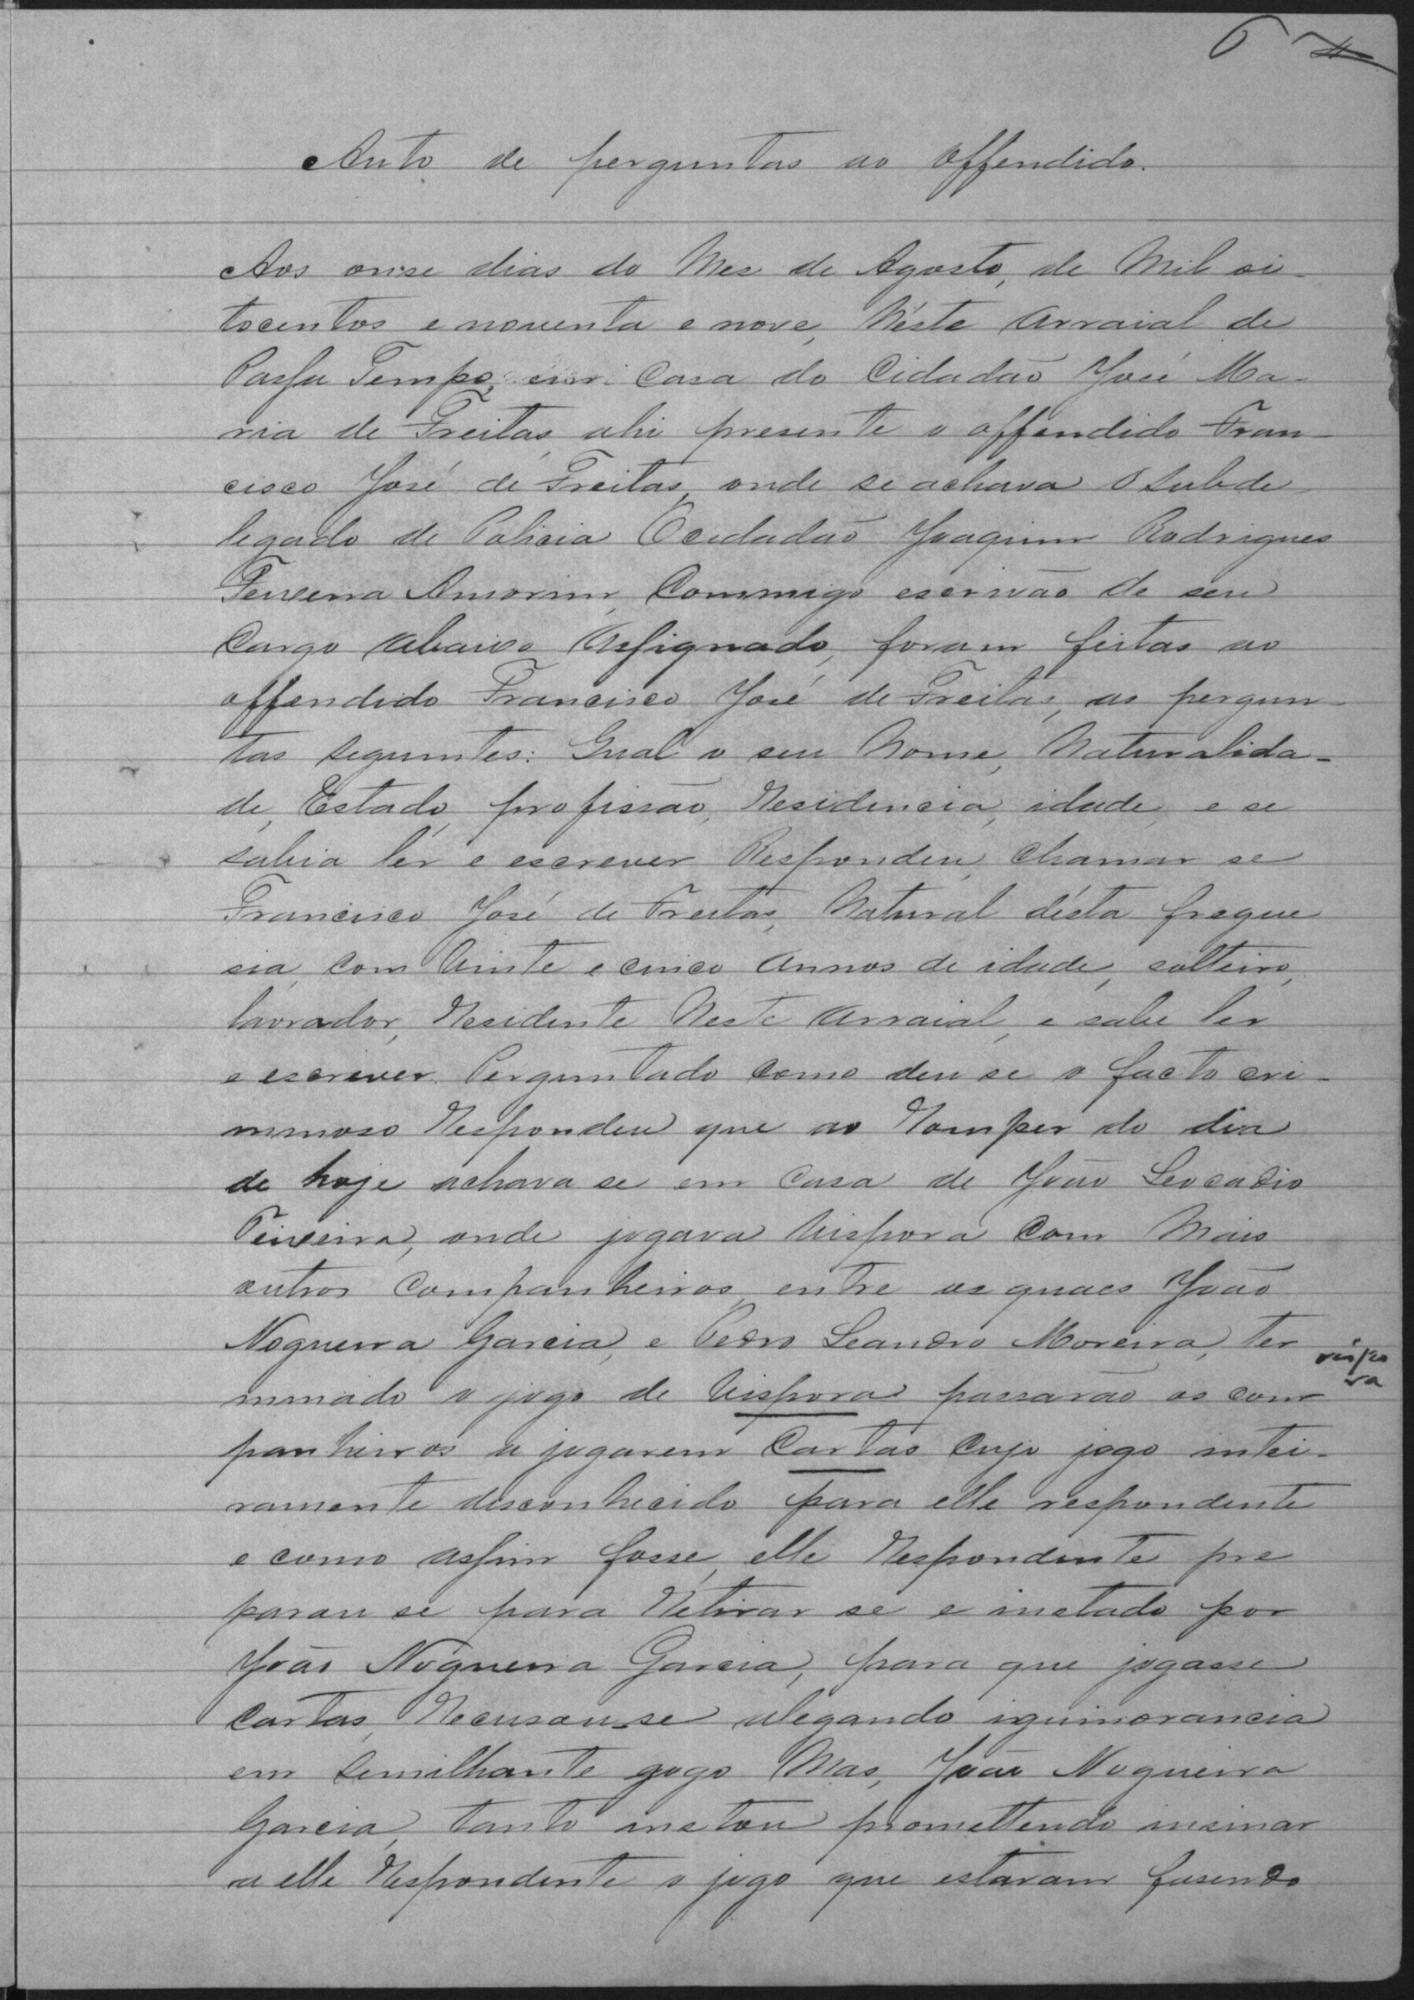 6
Auto de perguntas ao offendido.
Aos onse dias do Mes de Agosto, de Mil oi-
tocentos e noventa e nove, N'este Arraial de
Passa Tempo, em Casa do Cidadão José Ma-
ria de Freitas, ahi presente o offendido Fran-
cisco José de Freitas, onde se achava o subde-
legado de Policia O cidadão Joaquim Rodrigues
Teixeira Amorim, Commigo escrivão de seu
Cargo abaixo Assignado, foram feitas ao
offendido Francisco José de Freitas, as pergun-
tas seguintes: Qual o seu Nome, Naturalida-
de, Estado, profissão, Residencia, idade, e se
sabia ler e escrever Respondeu, Chamar se
Francisco José de Freitas, Natural d'ésta fregue
sia, com Vinte e cinco Annos de idade, solteiro,
lavrador, Residente Neste Arraial, e sabe ler
e escrever. Perguntado como deu se o facto cri-
minoso Respondeu que ao Romper do dia
de hoje achava se em Casa de João Leocadio
Teixeira, onde jogava Vispora com Mais
outros Companheiros, entre os quaes João
Nogueira Garcia, e Pedro Leandro Moreira, ter
vispo
ra
minado o jogo de Vispora passarão os com
panheiros a jogarem Cartas Cujo jogo intei-
ramente desconhecido para elle respondente
e como assim fosse, elle Respondente pre
parou se para Retirar se e instado por
João Nogueira Garcia, para que jogasse
Cartas, Recusou-se alegando iguinorancia
em Semilhante gogo Mas, João Nogueira
Garcia, tanto instou promettendo insinar
a elle Respondente o jogo que estavam fasendo